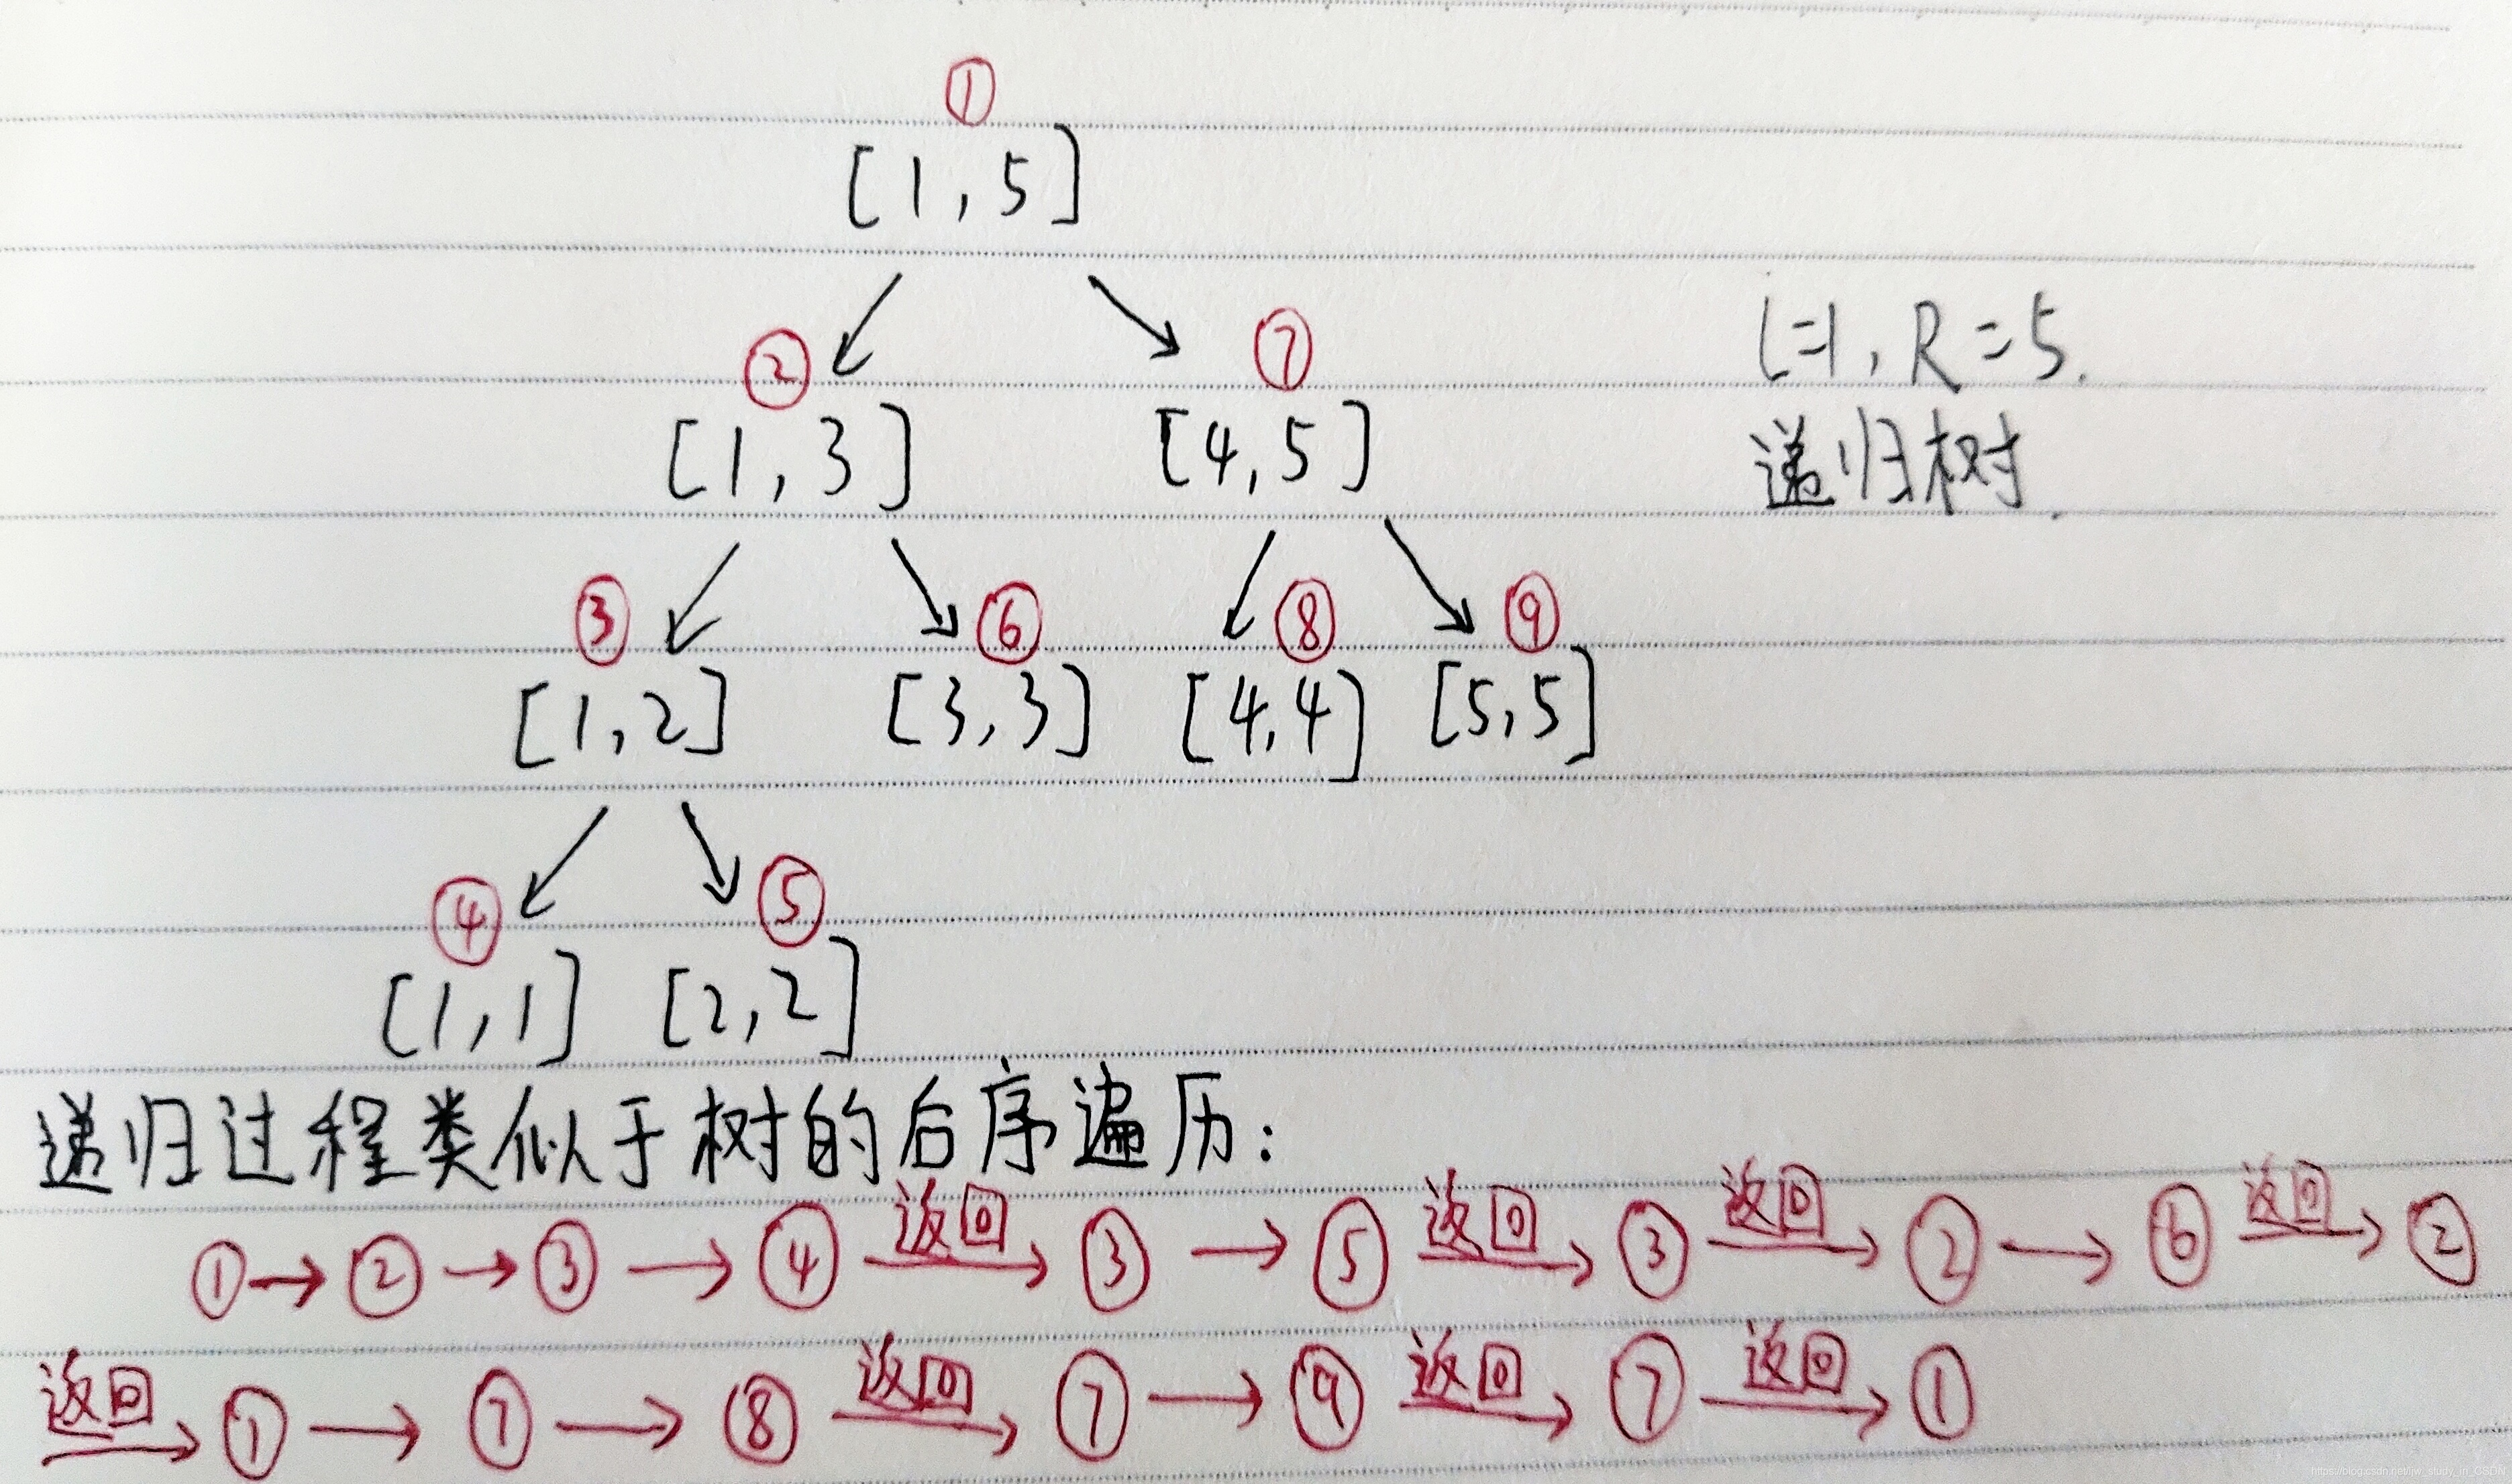 ①
[1,5]
② ⑦
L=1, R=5.
[1,3] [4,5]
递归树.
③ ⑥ ⑧ ⑨
[1,2] [3,3] [4,4] [5,5]
④ ⑤
[1,1] [2,2]
递归过程类似于树的后序遍历:
①→②→③→④ 返回→ ③→⑤ 返回→ ③ 返回→ ②→⑥ 返回→ ②
返回→ ①→⑦→⑧ 返回→ ⑦→⑨ 返回→ ⑦ 返回→ ①
https://blog.csdn.net/jw_study_in_CSDN